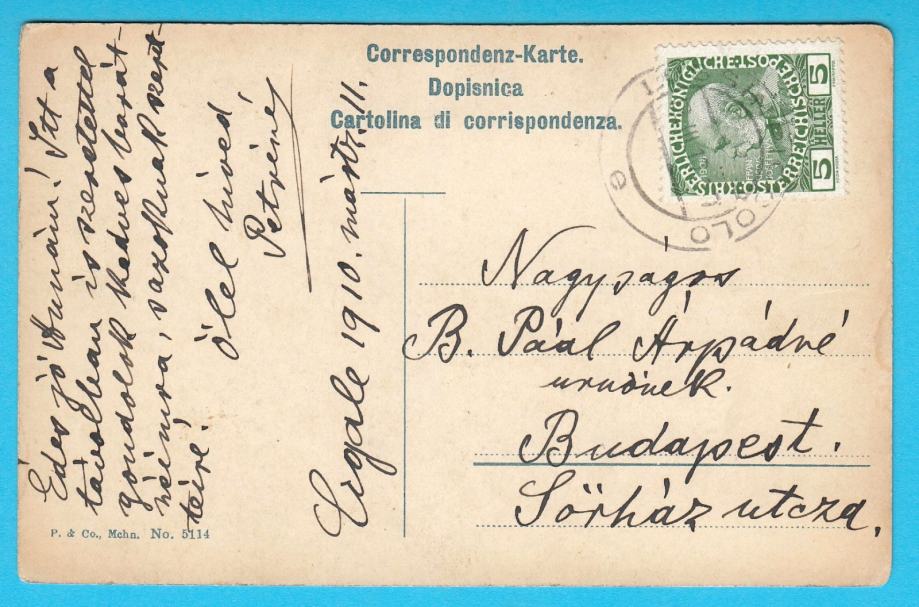 Correspondenz-Karte.
Dopisnica
Cartolina di corrispondenza.
5
HELLER
5
KAISERLICHE KÖNIGLICHE ÖSTERREICHISCHE POST
Édes jó Annám! Itt a
távolban is szeretettel
gondolok kedves barát-
néimra, azoknak szere-
teire!
Ölel híved
Petréné
Cigale 1910. márt. 11.
Nagyságos
B. Páal Árpádné
urnőnek.
Budapest.
Sörház utcza,
P. & Co., Mchn. No. 5114